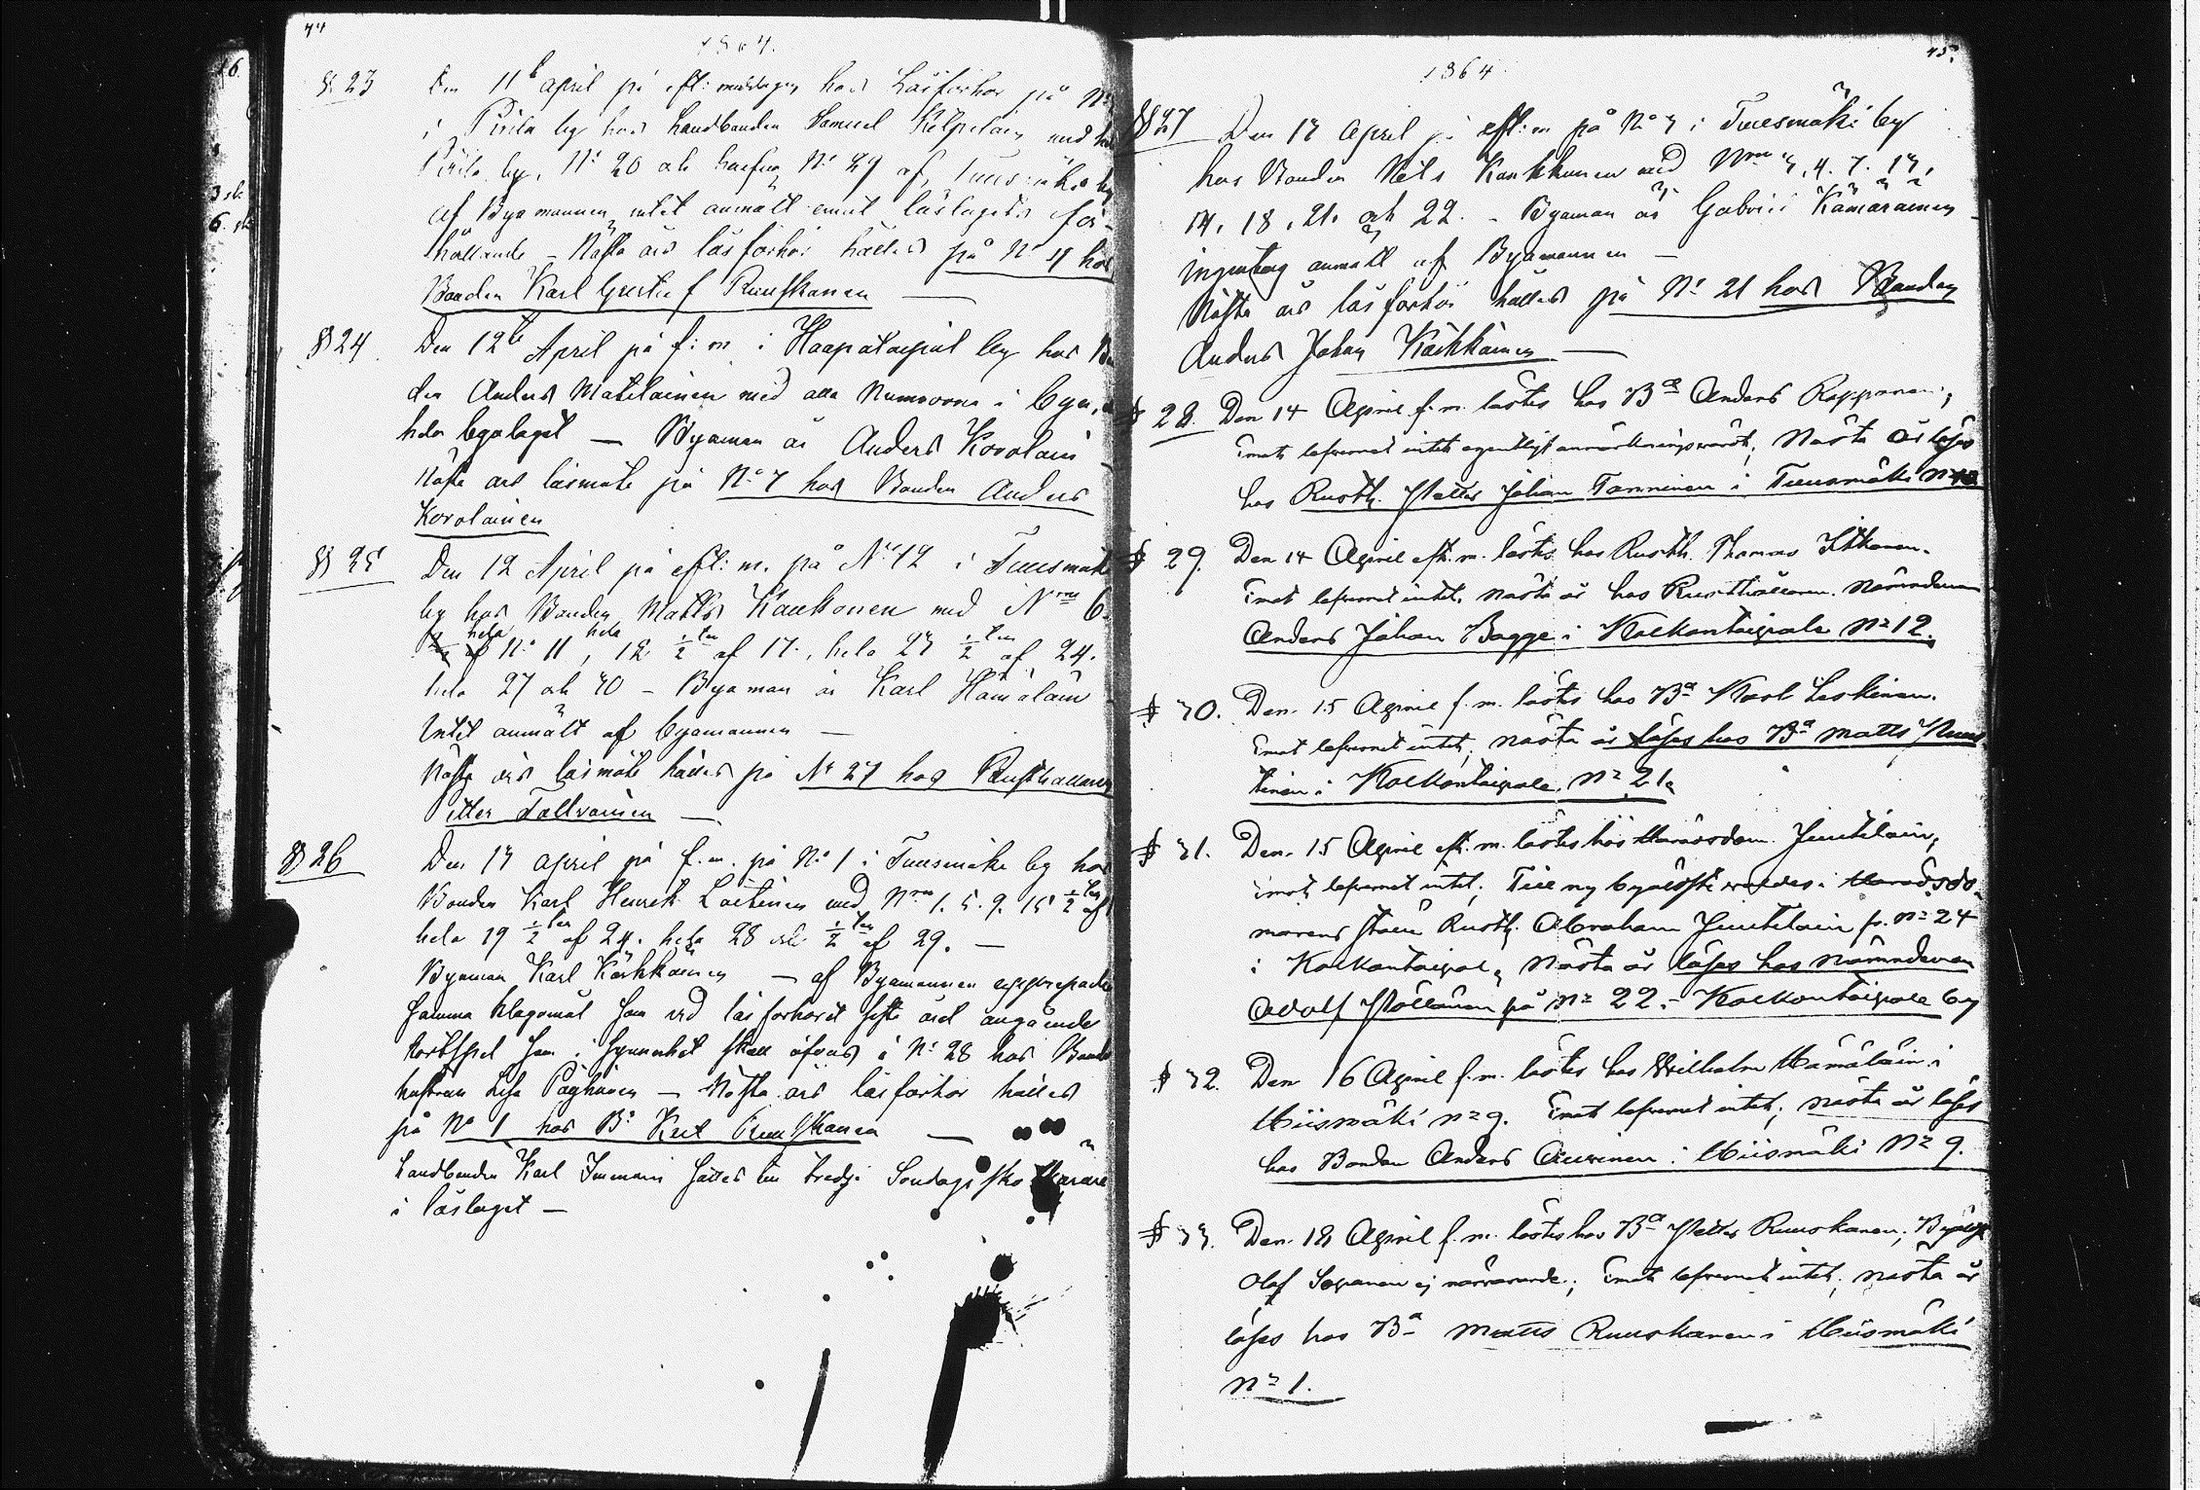 44
1864.
§ 23 Den 11te april på eft: middagen hos Läsförhör på No
i Pirila by hos Landbonden Samuel Kilpeläin med
Pirila by, No 20 och No 29 af Tuusmäki by
af Byamannen intet anmält emot läslagets för-
hållande – Nästa års läsförhör hålles på No 4 hos
Bonden Karl Gustaf Ruuskanen —
§ 24 Den 12te April på f: m i Haapataipal by hos Bo
den Anders Matilainen med alla Numrorna i byn,
hela byalaget — Byaman är Anders Korolain
Nästa års läsmöte på No 7 hos Bonden Anders
Korolainen
§ 25 Den 12 April på eft: m. på No 12 i Tuusmäki
by hos Bonden Matts Kaukonen med Nrne 6.
hela hela
No 11, 12 ½ten af 17., hela 23 ½ten af 24.
hela 27 och 30 – Byaman är Karl Hämäläin
Intet anmält af byamannen —
Nästa års läsmöte hålles på No 27 hos Rusthållaren
Petter Tallvainen —
§ 26 Den 13 april på f. m. på No 1 i Tuusmäki by hos
Bonden Karl Henrik Laitinen med Nrne 1. 5. 9. 15 ½ten af
hela 19 ½ten af 24. hela 28 och ½ten af 29. —
Byaman Karl Kärkkäinen — af Byamannen
samma klagomål som vid läsförhöret sista året angående
kortspel som i synnerhet skall öfvas i No 28 hos Bonde
hustrun Lisa — Nästa års läsförhör hålles
på No 1 hos Bn Karl Ruuskanen —
Landbonden Karl Immoin sattes till tredje Söndagsskolärare
i läslaget —
45.
1864.
§ 27 Den 13 April på eft: m på No 3 i Tuusmäki by
hos Bonden Nils Kankkunen med Nrne 3, 4. 7. 13,
14. 18. 21. och 22. – Byaman är Gabriel Kämäräinen –
ingenting anmält af Byamannen —
Nästa års läsförhör hålles på No 21 hos Bonden
Anders Johan Kärkkäinen —
§ 28. Den 14 April f. m. lästes hos Bn Anders Roppanen;
Emot lefvernet intet egentligt anmärkningsvärdt; Nästa år läses
hos Rusth. Petter Johan Tanninen i Tuusmäki No 10
§ 29. Den 14 April eft. m. lästes hos Rusth. Thomas Itkonen.
Emot lefvernet intet, nästa år hos Rusthållaren Nämndeman
Anders Johan Bagge i Kolkontaipale No 12.
§ 30. Den 15 April f. m. lästes hos Bn Karl Leskinen.
Emot lefvernet intet; nästa år läses hos Bn Matts
tinen i Kolkontaipale No 21.
§ 31. Den 15 April eft. m. lästes hos Häradsdom. Juutilain,
Emot lefvernet intet; Till ny byälste valdes i Häradsdo-
marens ställe Rusth. Abraham Juutilain fr. No 24
i Kolkontaipale, Nästa år läses hos nämndeman
Adolf Pöllänen på No 22. – Kolkontaipale by
§ 32. Den 16 April f. m. lästes hos Wilhelm Hämäläin i
Hiismäki No 9. Emot lefvernet intet; nästa år läses
hos Bonden Anders Auvinen i Hiismäki No 9.
§ 33. Den 18 April f. m. lästes hos Bn Petter Ruuskanen;
Olof Sopanen ej närvarande; Emot lefvernet intet; nästa år
läses hos Bn Matts Ruuskanen i Hiismäki
No 1.